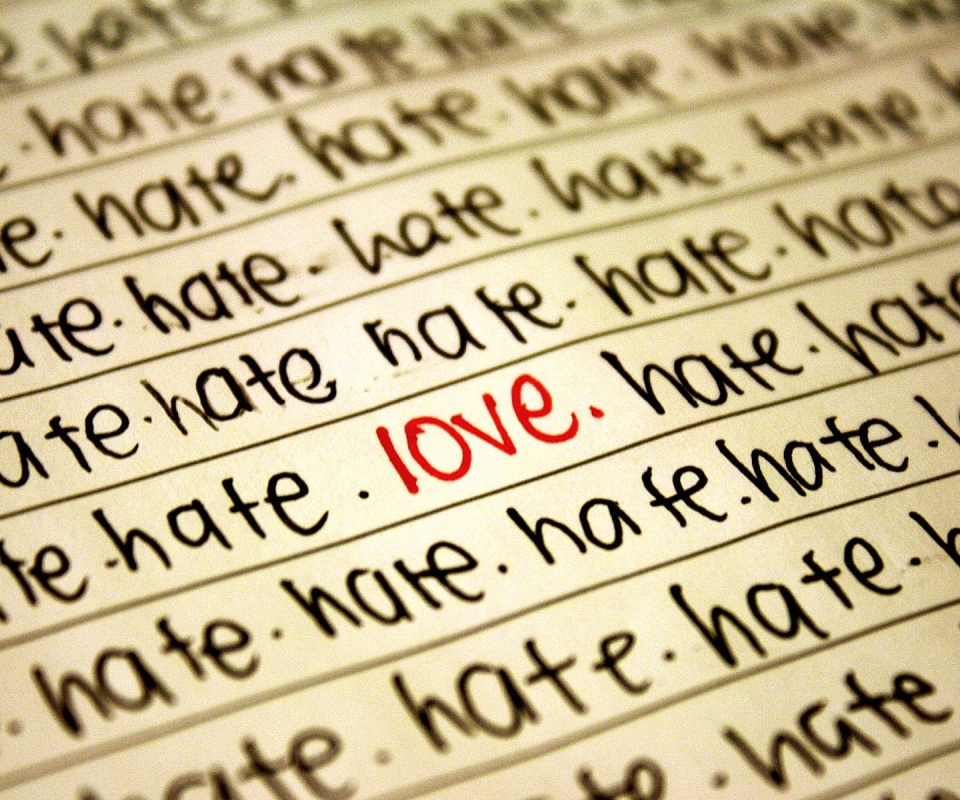 hate
hate. hate hate hate
e. hate. hate. hate. hate.
ate. hate. hate. hate. hate.
ate. hate hate. hate. hate
te. hate. love. hate. hate
. hate. hate. hate. hate.
hate. hate. hate. h
te. hate